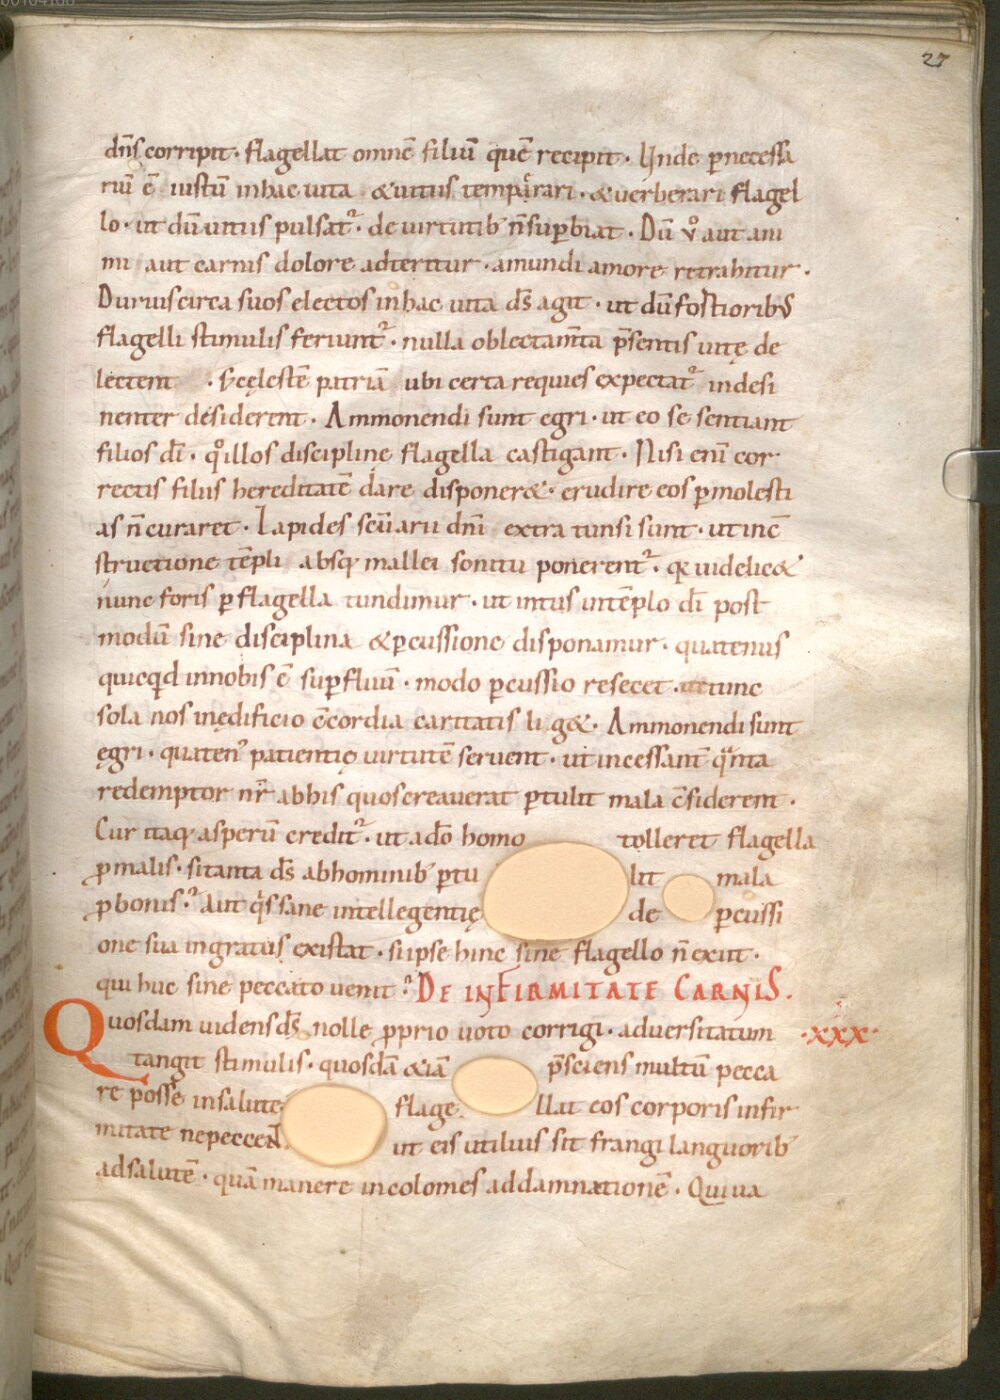 27
dn̄s corripit · flagellat omnē filiū quē recipit · Unde ꝑnecessa
riū ē iustū inhac uita & uitiis temptari · & uerberari flagel
lo · ut dū uitiis pulsat᷑ · de uirtutib n̄ suꝑbiat · Dū v̊ aut ani
mi aut carnis dolore adteritur · amundi amore retrahitur ·
Durius circa suos electos inhac uita ds̄ agit · ut dū fortiorib
flagelli stimulis feriunt᷑ · nulla oblectam̄ta p̄sentis uitę de
lectent · s; cęlestē patriā ubi certa requies expectat᷑ indesi
nenter desiderent · Ammonendi sunt egri · ut eo se sentiant
filios dī · qͦ illos discipline flagella castigant · Nisi enī cor
rectis filiis hereditatē dare disponer& · erudire eos ꝑ molesti
as n̄ curaret · Lapides sc̄uarii dn̄i extra tunsi sunt · ut inc̄
structione tēpli absq; mallei sonitu ponerent᷑ · qꝫ uidelic&
nunc foris ꝑ flagella tundimur · ut intus intēplo dī post
modū sine disciplina & ꝑcussione disponamur · quatenus
quicqid innobis ē suꝑfluū · modo ꝑcussio resecet · ut tunc
sola nos inędificio c̄cordia caritatis lig& · Ammonendi sunt
ęgri · quaten᷒ patientię uirtutē seruent · ut incessant̄ qͣnta
redemptor nr̄ abhis quos creauerat ꝑtulit mala c̄siderent ·
Cur itaq; asperū credit᷑ · ut adō homo tolleret flagella
ꝓ malis · si tanta ds̄ abhominib ꝑtulit mala
ꝓ bonis · Aut qͥs sane intellegentię de ꝑcussi
one sua ingratus existat · si ipse hinc sine flagello n̄ exiit ·
qui huc sine peccato uenit · DE INFIRMITATE CARNIS.
Quosdam uidens ds̄ nolle ꝓprio uoto corrigi · aduersitatum ·xxx·
tangit stimulis · quosdā &iā p̄sciens multū pecca
re posse insalute flagellat eos corporis infir
mitate ne peccent ut eis utilius sit frangi languorib
ad salutē · quā manere incolomes ad damnationē · Qui ua